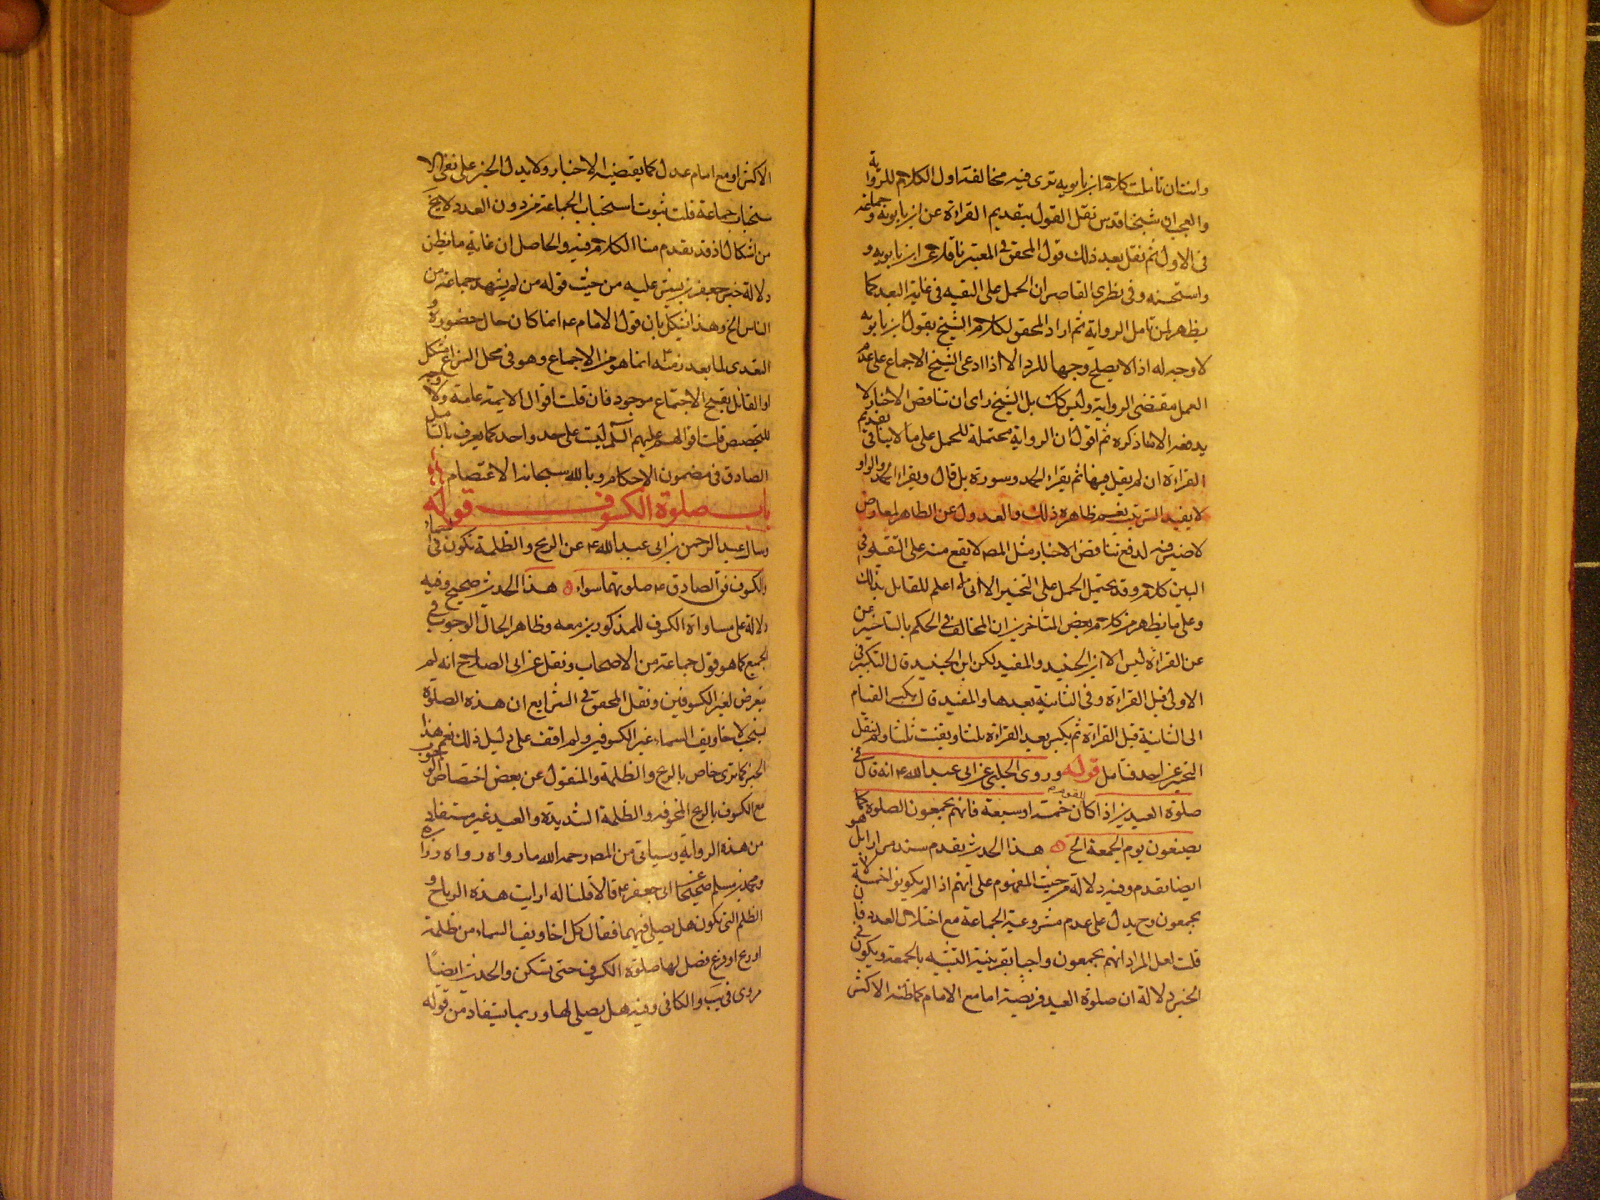 وانت ان تاملت كلام ابن بابويه ترى فيه مخالفة اول الكلام للرواية
والعجب ان شيخنا قدس نقل القول بتقديم القراءة عن ابن بابويه وجماعة
في الاول ثم نقل بعد ذلك قول المحقق في المعتبر ناقلا عن ابن بابويه و
واستحسنه وفي نظري القاصر ان الحمل على التقيه في غاية البعد كما
يظهر لمن تامل الرواية ثم اراد المحقق لكلام الشيخ بقول ابن بابويه
لا وجه له اذ لا يصلح وجها للرد الا اذا ادعى الشيخ الاجماع على عدم
العمل بمقتضى الرواية وليس كك بل الشيخ راى ان تناقض الاخبار لا
يدفعه الا ما ذكره ثم اقول ان الرواية محتملة للحمل على ما لا ينافي تقديم
القراءة ان لم يقل فيها ثم يقراء الحمد وسورة بل قال ويقراء الحمد والواو
لا يفيد الترتيب نعم ظاهره ذلك والعدول عن الظاهر لمعارض
لا ضير فيه لدفع تناقض الاخبار مثل المص لا يقع منه على التقدم في
البين كلام وقد يحتمل الحمل على التخيير الا اني لم اعلم للقايل بذلك
وعلى ما يظهر من كلام بعض المتاخرين ان المخالف في الحكم بالتاخير عن
عن القراءة ليس الا ابن الجنيد والمفيد لكن ابن الجنيد قال التكبير في
الاولى قبل القراءة وفي الثانية بعدها والمفيد قال يكبر القيام
الى الثانية قبل القراءة ثم يكبر بعد القراءة ثلثا ويقنت ثلثا ولم ينقل
التخيير عن احد فتامل قوله وروى الحلبي عن ابي عبد الله ع انه قال في
صلوة العيدين اذا كان القوم خمسة او سبعة فانهم يجمعون الصلوة كما
يصنعون يوم الجمعة الخ هذا الحديث تقدم سنده مرارا بل هو
ايضا تقدم وفيه دلالة من حيث المفهوم على انهم اذا لم يكونوا خمسة لا
يجمعون وح يدل على عدم مشروعية الجماعة مع اختلال العدد فان
قلت لعل المراد انهم يجمعون واجبا بقرينة التشبيه بالجمعة ويكون في
الخبر دلالة ان صلوة العيد فريضة اما مع الامام كما ظنه الاكثر
الاكثر او مع امام عدل كما يقتضيه الاخبار ولا يدل الخبر على نفي الا
ستحباب جماعة قلت ثبوت استحباب الجماعة من دون العدد لا يخ
من اشكال اذ قد تقدم منا الكلام فيه والحاصل ان غاية ما يظن
دلالة خبر جعفر بن بشير عليه من حيث قوله من لم يشهد جماعة من
الناس الخ وهذا يشكل بان قول الامام ع انما كان حال حضوره و
التعدى لما بعد زمنه انما هو من الاجماع وهو في محل النزاع مشكل
او القائل بقبح الاجتماع موجود فان قلت اقوال الايمة عامة ولا وجه
للتخصص قلت اقوالهم عليهم السلم ليست على حد واحد كما يعرف بالتامل
الصادق في مضمون الاحكام وبالله سبحانه الاعتصام
باب صلوة الكسوف قوله
وسال عبد الرحمن بن ابي عبد الله ع عن الريح والظلمة تكون في السماء
والكسوف فق الصادق ع صلوتهما سواء هذا الحديث صحيح وفيه
دلالة على مساواة الكسوف للمذكورين معه وظاهر الحال الوجوب في
الجميع كما هو قول جماعة من الاصحاب ونقل عن ابي الصلاح انه لم
يتعرض لغير الكسوفين ونقل المحقق في الشرايع ان هذه الصلوة
يستحب لاخاويف السماء غير الكسوفين ولم اقف على دليل ذلك نعم هذا
الخبر كما ترى خاص بالريح والظلمة والمنقول عن بعض اختصاص الوجوب
مع الكسوف بالريح المخوفة والظلمة الشديدة والعيد غير مستفاد
من هذه الرواية وسياتي من المص رحمه الله ما رواه رواه زرارة
ومحمد بن مسلم صحيحا عن ابي جعفر ع قالا قلنا له ارايت هذه الرياح و
الظلم التي تكون هل يصلى فيهما فقال كل اخاويف السماء من ظلمة
او ريح او فزع فصل لها صلوة الكسوف حتى تسكن والحديث ايضا
مروى في يب والكافي وفيه هل يصلى لها وربما يستفاد من قوله